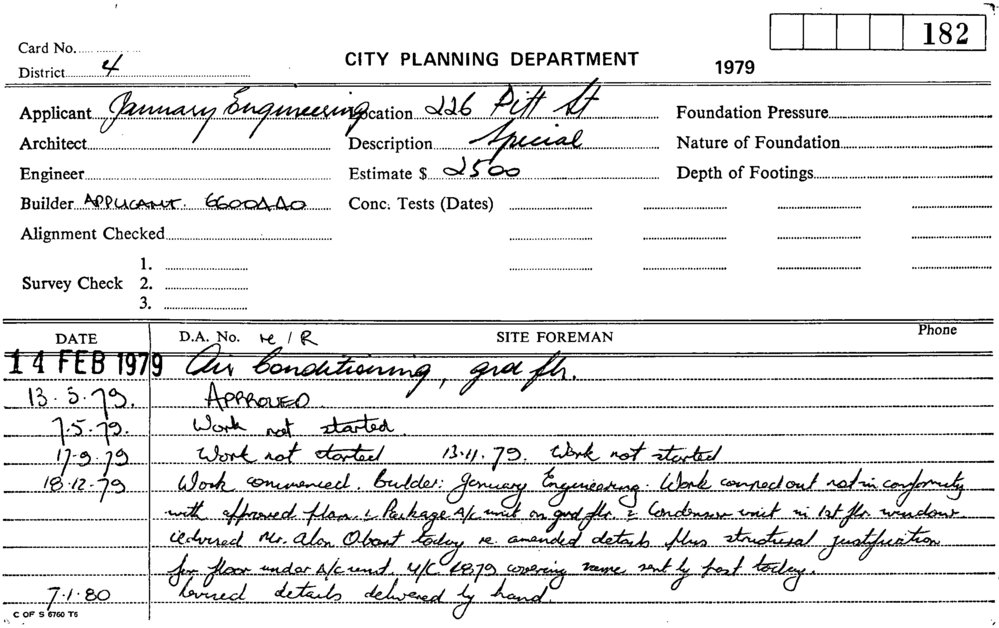 182
Card No.
District 4
CITY PLANNING DEPARTMENT 1979
Applicant January Engineering Location 226 Pitt St Foundation Pressure
Architect Description Special Nature of Foundation
Engineer Estimate $ 2500 Depth of Footings
Builder APPLICANT. 6600440 Conc. Tests (Dates)
Alignment Checked
1.
Survey Check 2.
3.
DATE D.A. No. re/R SITE FOREMAN Phone
14 FEB 1979 Air Conditioning, grd flr.
13.3.79. APPROVED.
7.5.79. Work not started.
17.9.79 Work not started 13.11.79. Work not started
18.12.79 Work commenced. builder: January Engineering. Work carried out not in conformity
with approved plan. 1. Package A/C unit on grd flr. 2. Condensor unit in 1st flr window.
Advised Mr. Alan today re. amended details plus structural justification
for floor under A/C unit. covering same sent by post today.
7.1.80 Revised details delivered by hand.
C OF S 6760 T6